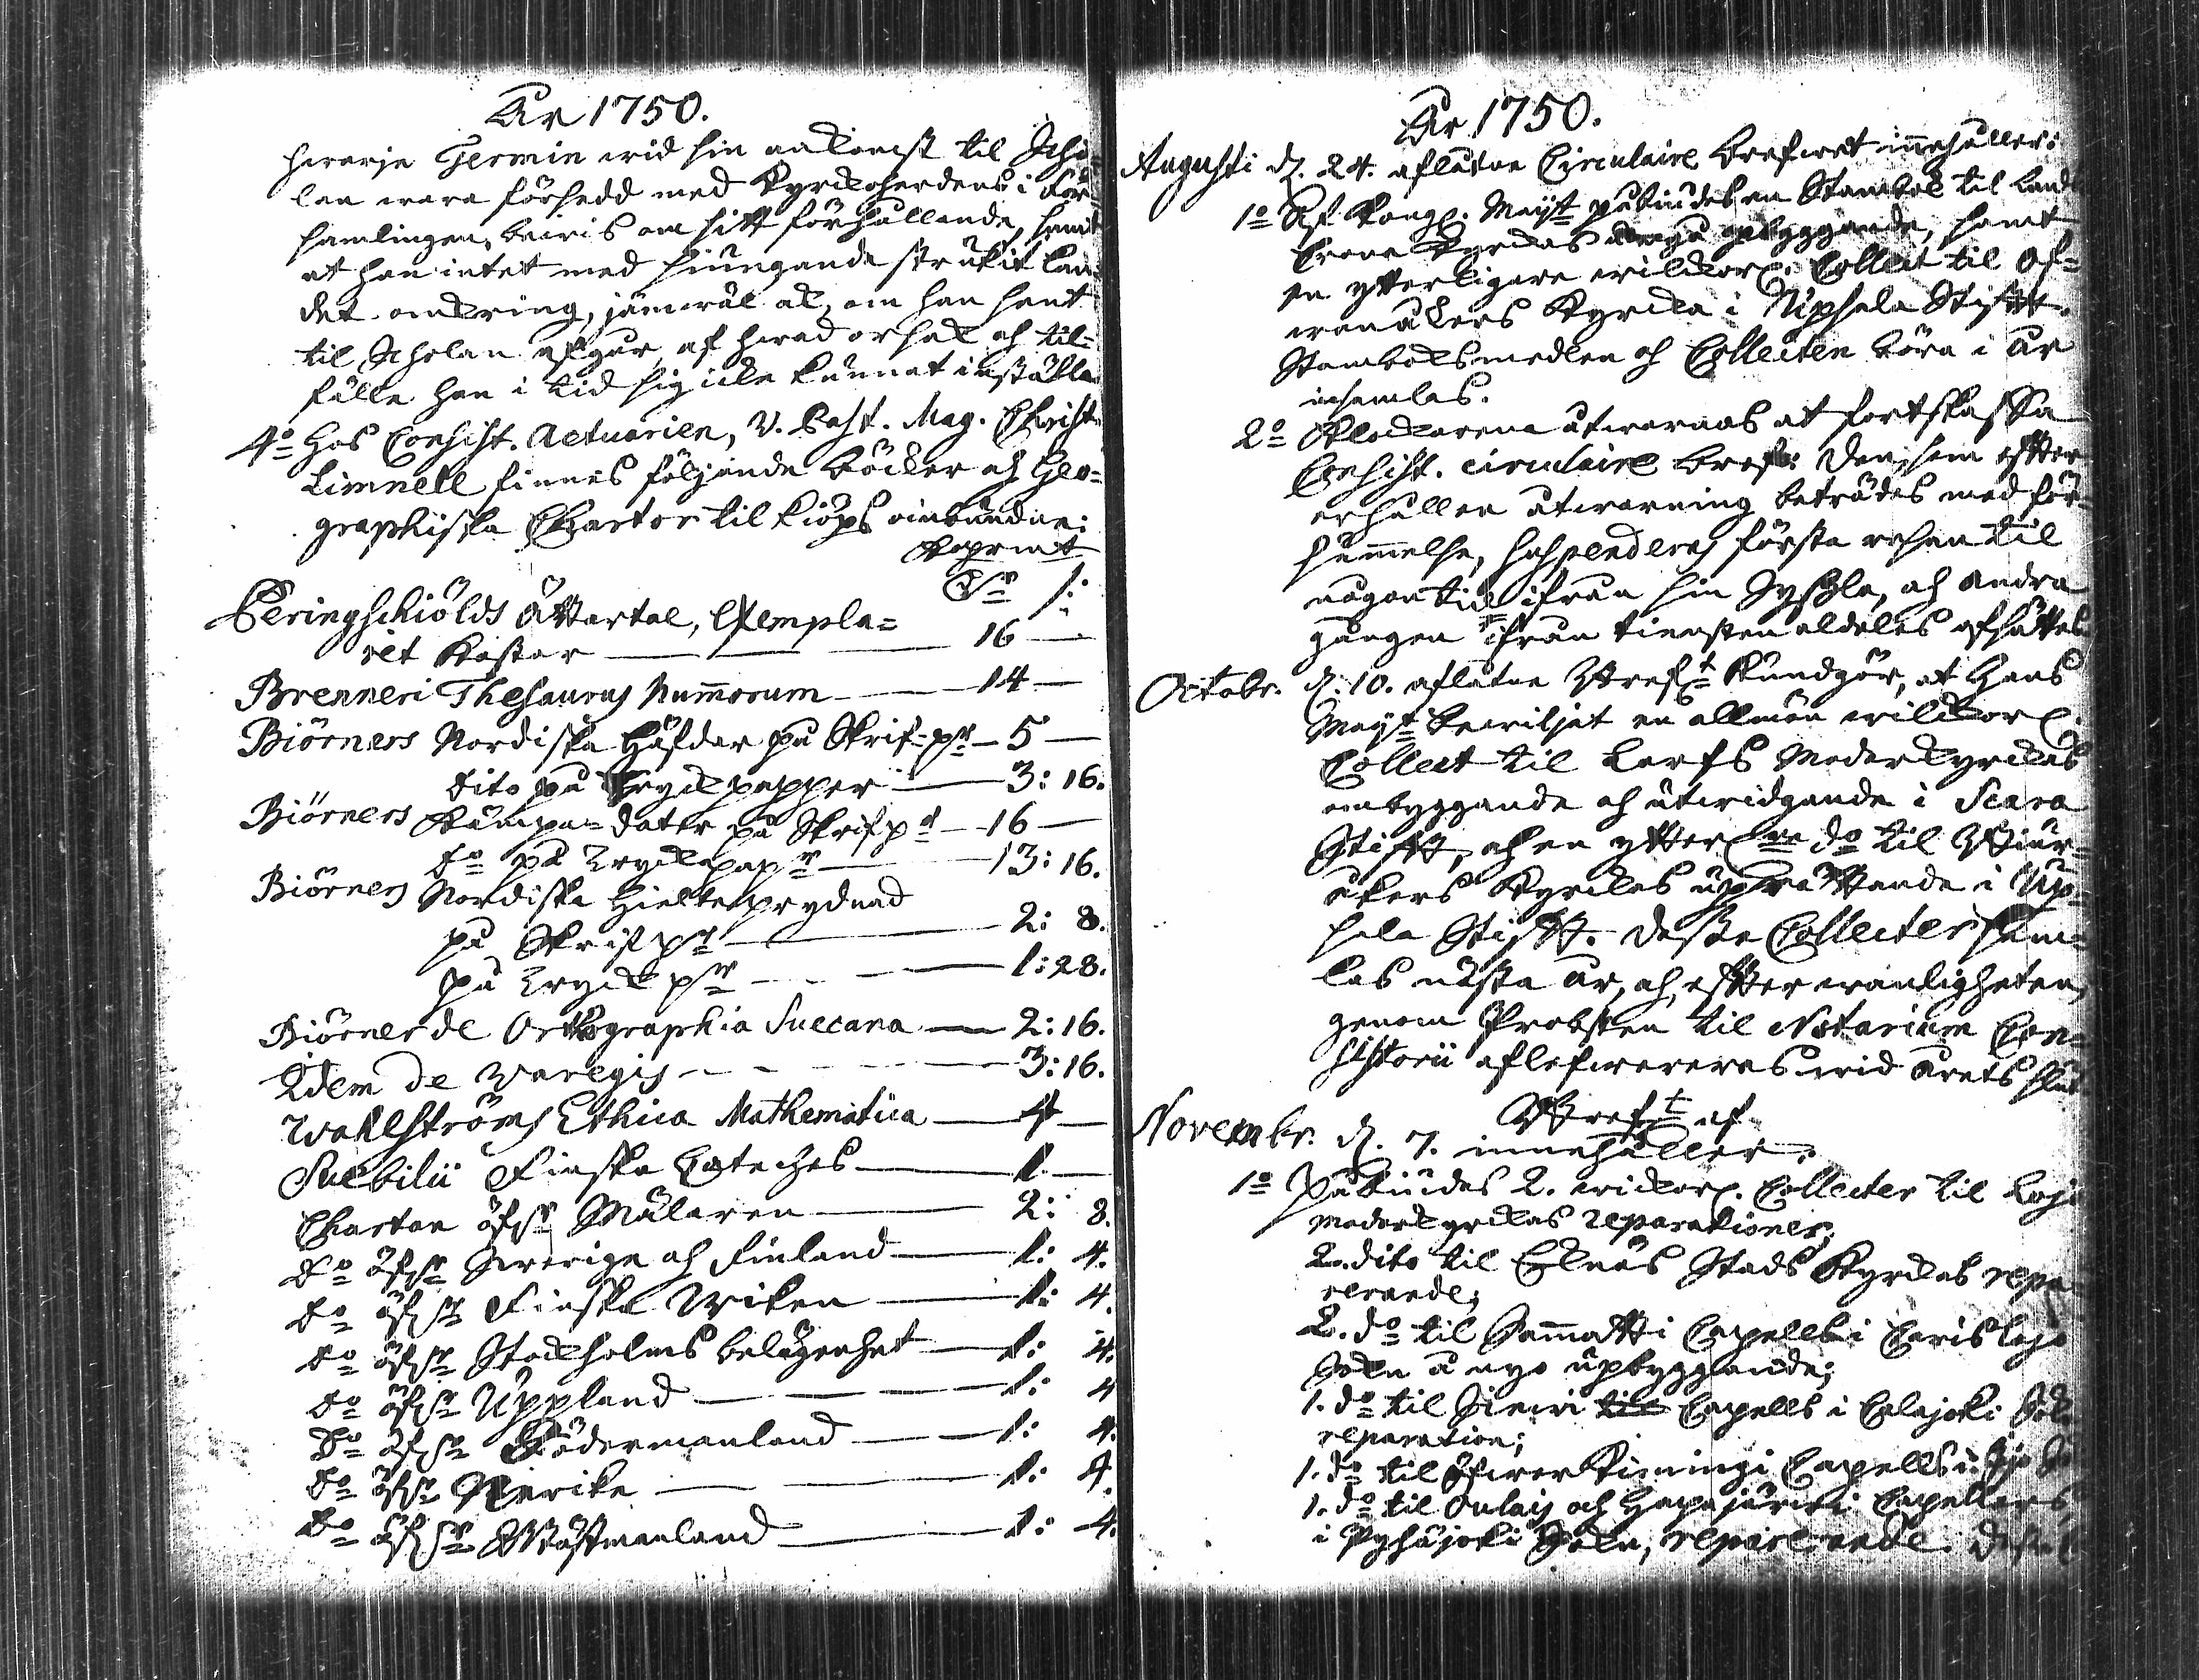 År 1750.
hwarje Termin wid sin ankomst til Scho-
lan wara försedd med Kyrckoherdens i För-
samlingen bewis om sitt förhållande, samt
at han intet med siungande strukit lan-
det omkring, jämwäl ock, om han sent
til Scholan afgår, af hwad orsak och til-
fälle han i tid sig icke kunnat inställa
4:o Hos Consist. Actuarien, V. Past. Mag. Christ.
Limnell finnes följande böcker och Geo-
graphiska Chartor til kiöps oinbundne:
Kopprmt
Dr /:
Peringschiölds Ättartal, Exempla=
ret kostar 16 —
Brenneri Thesaurus Nummorum 14 —
Biörners Nordiska Häfdar på Skrif-pr 5 —
dito på Tryckpapper 3: 16.
Biörners Kämpa-dater på Skrifpr 16 —
do på Tryckpappr 13: 16.
Biörners Nordiska Hielteprydnad
på Skrifpr 2: 8.
på Tryckpr 1: 28.
Biörner de Orthographia Suecana 2: 16.
Idem de Varegis 3: 16.
Wahlströms Ethica Mathematica 4 —
Suebilii Finska Cateches 1 —
Chartan öfwr Mälaren 2: 8.
do öfwr Swerige och Finland 1: 4.
do öfwr Finska Wiken 1: 4.
do öfwr Stockholms belägenhet 1: 4.
do öfwr Uppland 1: 4
do öfwr Södermanland 1: 4.
do öfwr Nerike 1: 4.
do öfwr Wästmanland 1: 4.
År 1750.
Augusti d. 24. aflåtne Circulaire brefwet innehåller:
1:o Af Kongl. Mayt påbiudes en Stambok til Lands
Crona Kyrckas upbyggande, samt
en ytterligare wilckorl. Collect til Of-
wanåkers Kyrcka i Upsala Stift.
Stamboksmedlen och Collecten böra i år
insamlas.
2:o Klockarena åtwarnas at fortskaffa
Consist. circulaire bref: Den, som efter
erhållen åtwarning beträdes med för-
summelse, suspenderas första resan til
någon tid ifrån sin Syssla, och andra
gången ifrån tiensten aldeles afsättes
Octobr. d. 10. aflåtne Kundgör, at Hans
Mayt bewiljat en allmän wilckorl.
Collect til Larfs Moderkyrckas
ombyggande och utwidgande i Scara
Stift, och en ytterlre do til
åkers Kyrckas uprättande i Up-
sala Stift. Desse Collecter sam-
las nästa år, och, efter wanligheten,
genom Probsten til Notarium Con-
sistorii aflefwereras wid årets slut
af
Novembr. d. 7. innehåller:
1:o Påbiudes 2. wilkorl. Collecter til Lojo
moderkyrckas reparationer;
2. dito til Ekenäs Stads Kyrckas repa-
rerande;
2. do til Sammatti Capells i Carislojo
Sokn å nyo upbyggande;
1. do til Siewi Capells i Calajoki Sokn
reparation;
1. do til öfwer Kimingi Capells i Ijo
1. do til Oulais och Haapajärwi Capellers
i Pyhäjoki Sokn, reparerande.